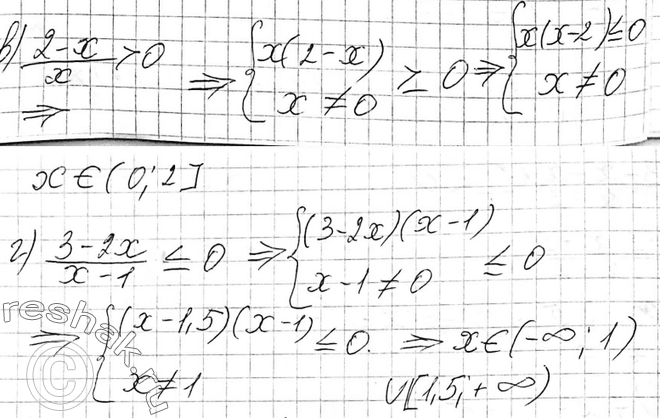 в) (2-x)/x > 0 ⇒ {x(2-x) ≥ 0 ⇒ {x(x-2) ≤ 0
⇒ x ≠ 0 x ≠ 0
x ∈ (0; 2]
г) (3-2x)/(x-1) ≤ 0 ⇒ {(3-2x)(x-1) ≤ 0
x-1 ≠ 0
⇒ {(x-1,5)(x-1) ≤ 0. ⇒ x ∈ (-∞; 1)
x ≠ 1 ∪ [1,5; +∞)
©reshak.ru